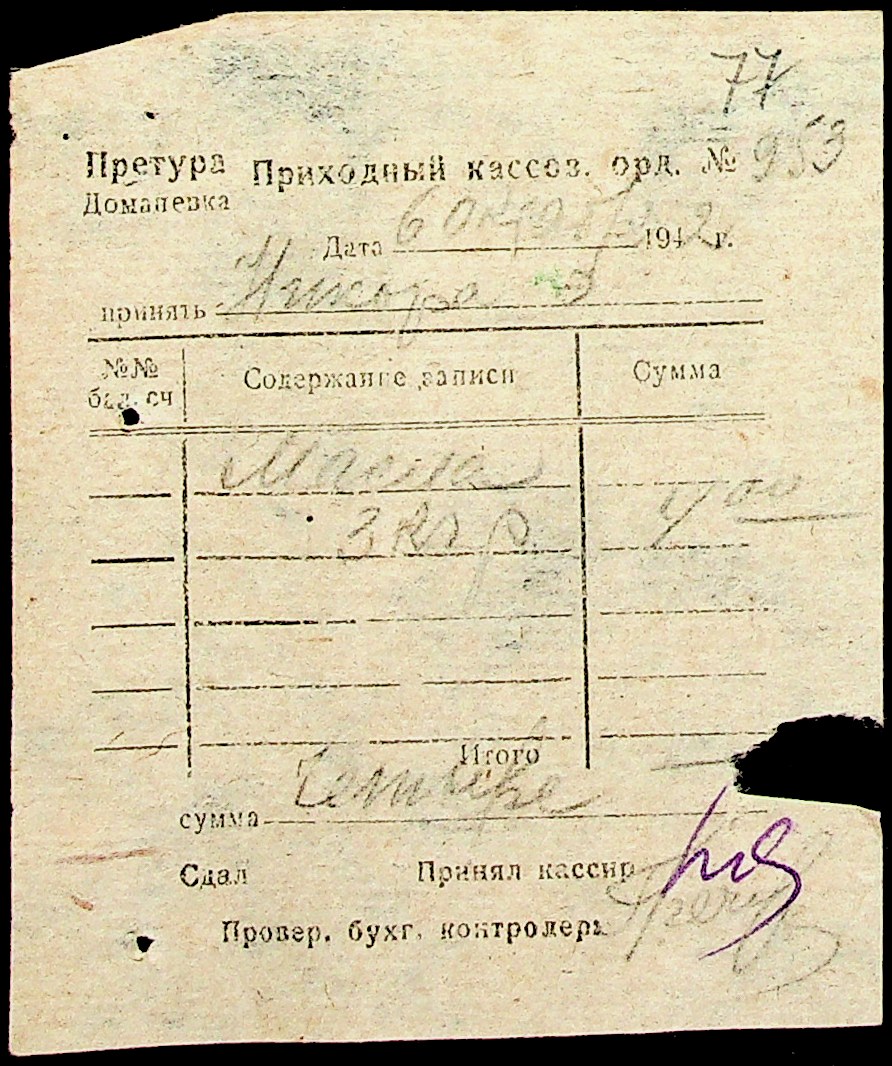 77
Претура Приходный кассов. орд. № 953
Домапевка
Дата 6 октября 1942 г.
принять
№№ бал. сч Содержание записи Сумма
Масла
3 кгр. 4 00
Итого
сумма Четыре
Сдал Принял кассир
Провер. бухг. контролер